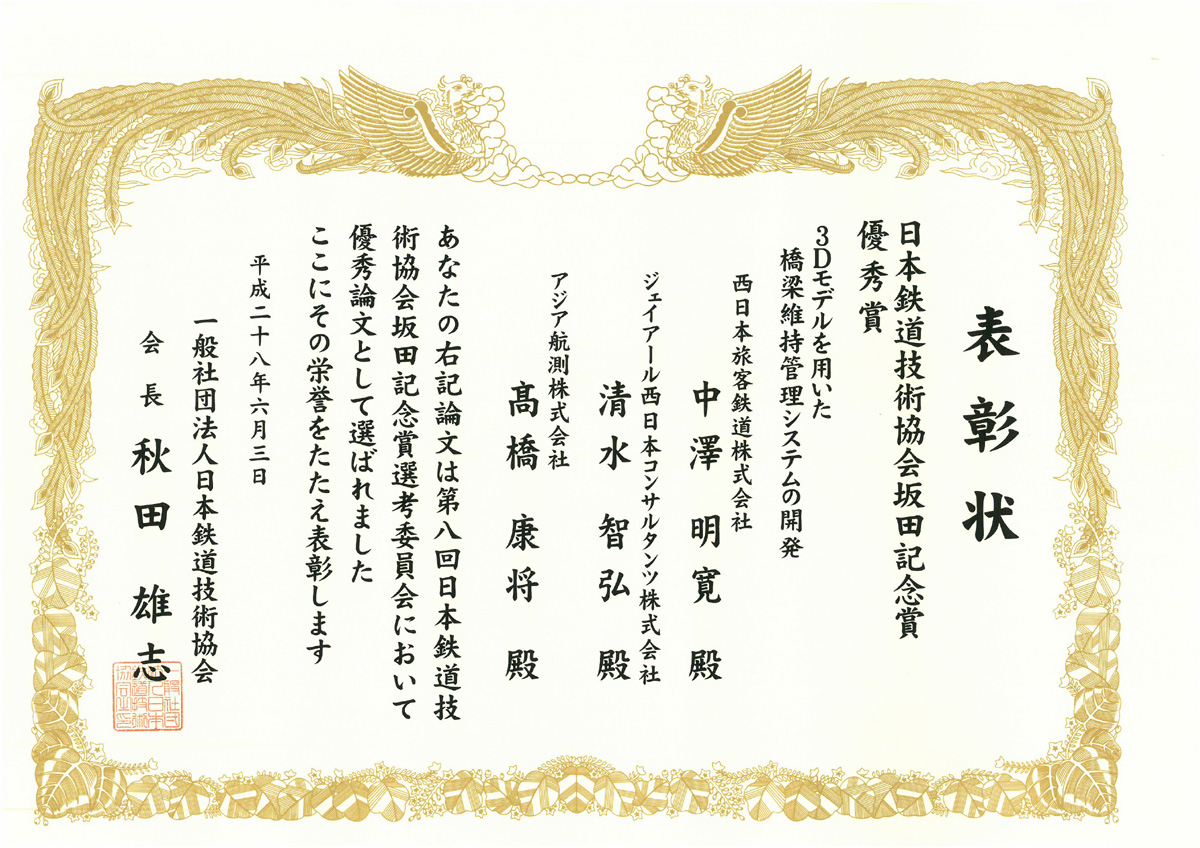 表彰状
日本鉄道技術協会坂田記念賞
優秀賞
3Dモデルを用いた
橋梁維持管理システムの開発
西日本旅客鉄道株式会社
中澤 明寛 殿
ジェイアール西日本コンサルタンツ株式会社
清水 智弘 殿
アジア航測株式会社
髙橋 康将 殿
あなたの右記論文は第八回日本鉄道技
術協会坂田記念賞選考委員会において
優秀論文として選ばれました
ここにその栄誉をたたえ表彰します
平成二十八年六月三日
一般社団法人日本鉄道技術協会
会長 秋田 雄志